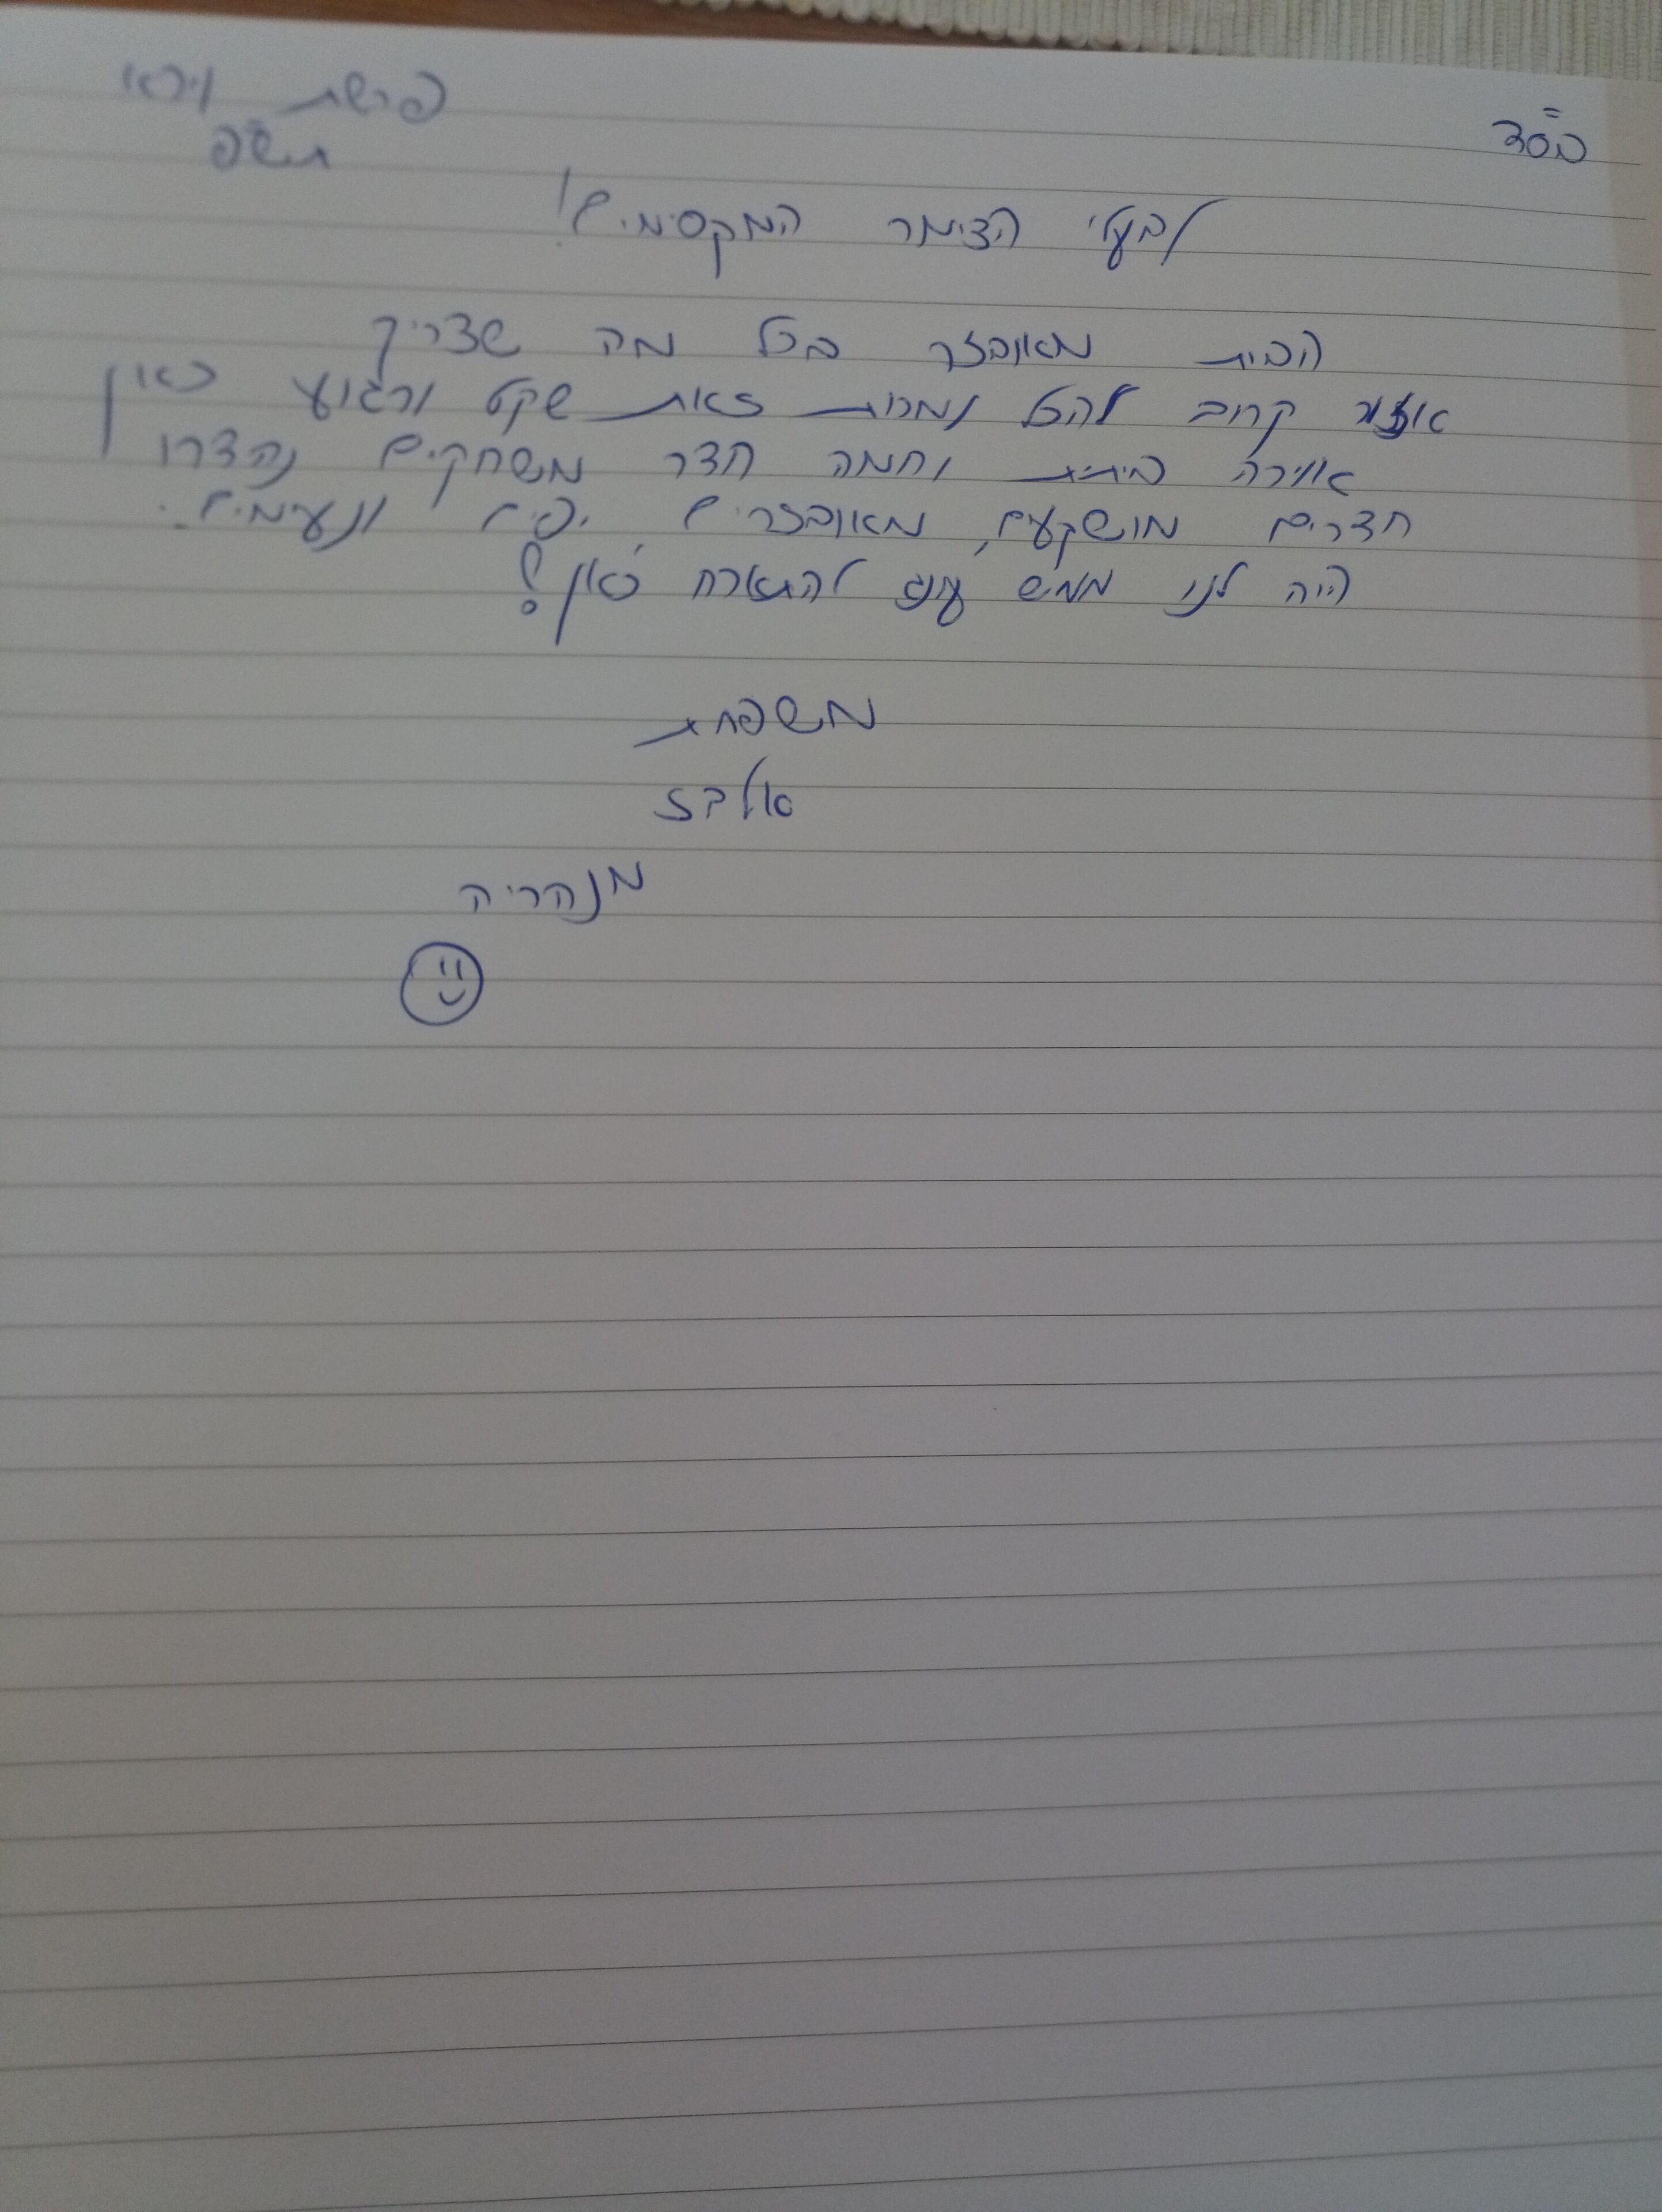 בס"ד
פרשת וירא
תש"פ
לבעלי הצימר המקסימים!
הבית מאובזר בכל מה שצריך
אזור קרוב להכל ולמרות זאת שקט ורגוע כאן
אוירה ביתית וחמה חדר משחקים נהדר
חדרים מושקעים, מאובזרים יפים ונעימים.
היה לנו ממש עונג להתארח כאן!
משפחת
אלבז
מנהריה